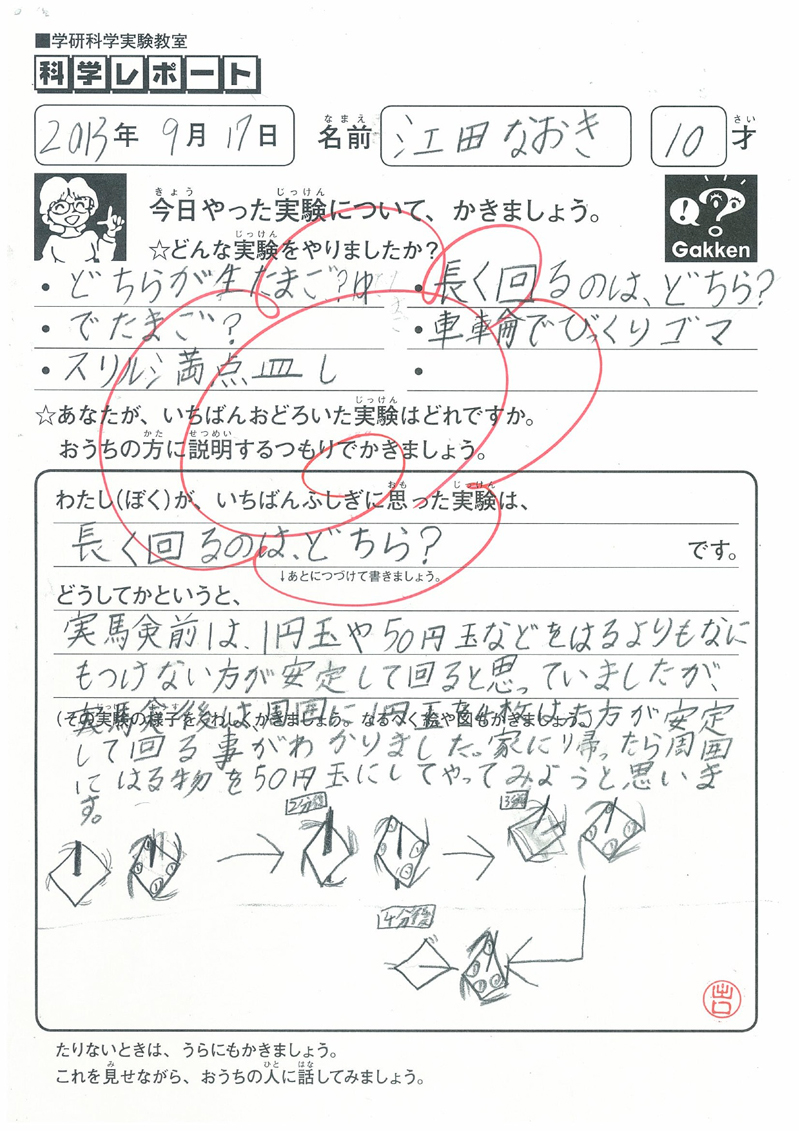 ■学研科学実験教室
科学レポート
2013年 9月 17日 名前 江田なおき 10才
今日やった実験について、かきましょう。
Gakken
☆どんな実験をやりましたか?
・どちらが生たまご?ゆ
・でたまご?
・スリル満点皿し
・長く回るのは、どちら?
・車輪でびっくりゴマ
・
☆あなたが、いちばんおどろいた実験はどれですか。
おうちの方に説明するつもりでかきましょう。
わたし(ぼく)が、いちばんふしぎに思った実験は、
長く回るのは、どちら? です。
↓あとにつづけて書きましょう。
どうしてかというと、
実験前は、1円玉や50円玉などをはるよりもなに
もつけない方が安定して回ると思っていましたが、
(その実験の様子をくわしくかきましょう。なるべく絵や図もかきましょう。)
実験後は周囲に1円玉を4枚はった方が安定
して回る事がわかりました。家に帰ったら周囲
にはる物を50円玉にしてやってみようと思いま
す。
2分後
3分後
4分後
たりないときは、うらにもかきましょう。
これを見せながら、おうちの人に話してみましょう。